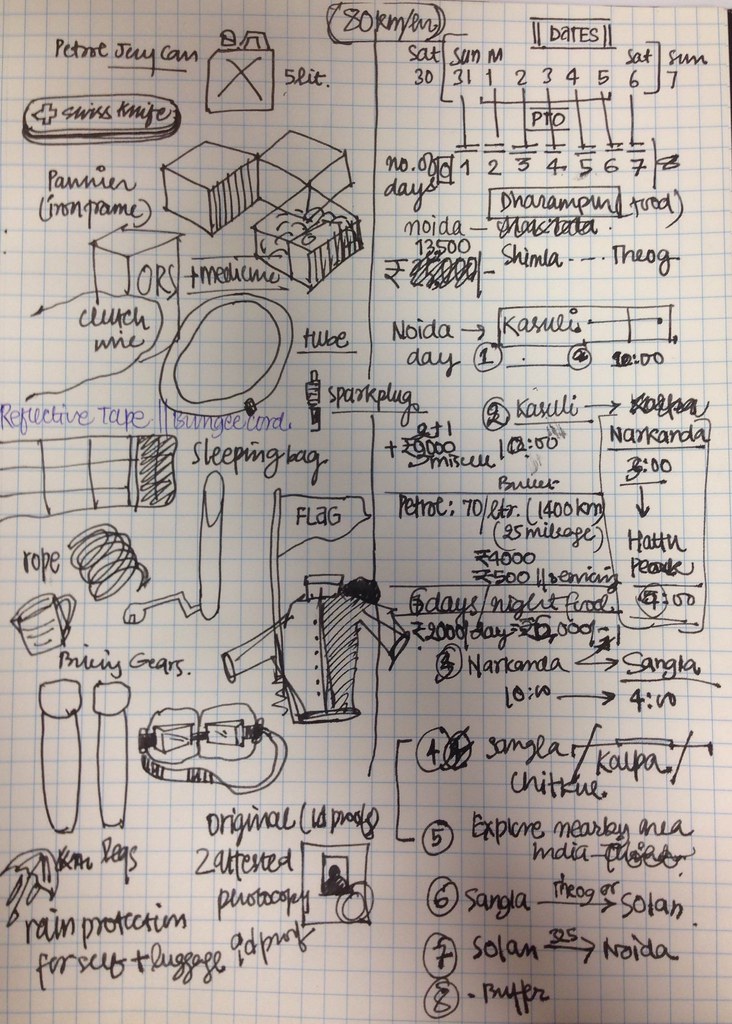 80 km/hr
Petrol Jerry Can
5 lit.
swiss knife
Pannier
(iron frame)
ORS + medicine
clutch
wire
tube
spark plug
Reflective Tape || Bungee cord.
sleeping bag
FLAG
rope
Biking Gears.
Legs
original (id proofs)
2 attested
photocopy
id proof
rain protection
for self + luggage
|| DATES ||
Sat Sun M Sat Sun
30 31 1 2 3 4 5 6 7
PTO
no. of
days 0 1 2 3 4 5 6 7 8
Dharampur (food)
noida -
13500
₹ - Shimla --- Theog
Noida → Kasuli
day 1 10:00
2 Kasuli →
Narkanda
2+1
10:00
miscell
3:00
Petrol: 70/ltr. (1400 km)
(25 mileage)
Hattu
Peak
₹4000
₹500 || servicing
:00
days/night food.
₹2000/day =
3 Narkanda → Sangla
10:00 → 4:00
4 Sangla Kalpa
Chitkul
5 Explore nearby area
india
6 Sangla Theog or → Solan
7 Solan 325 → Noida
8 - Buffer